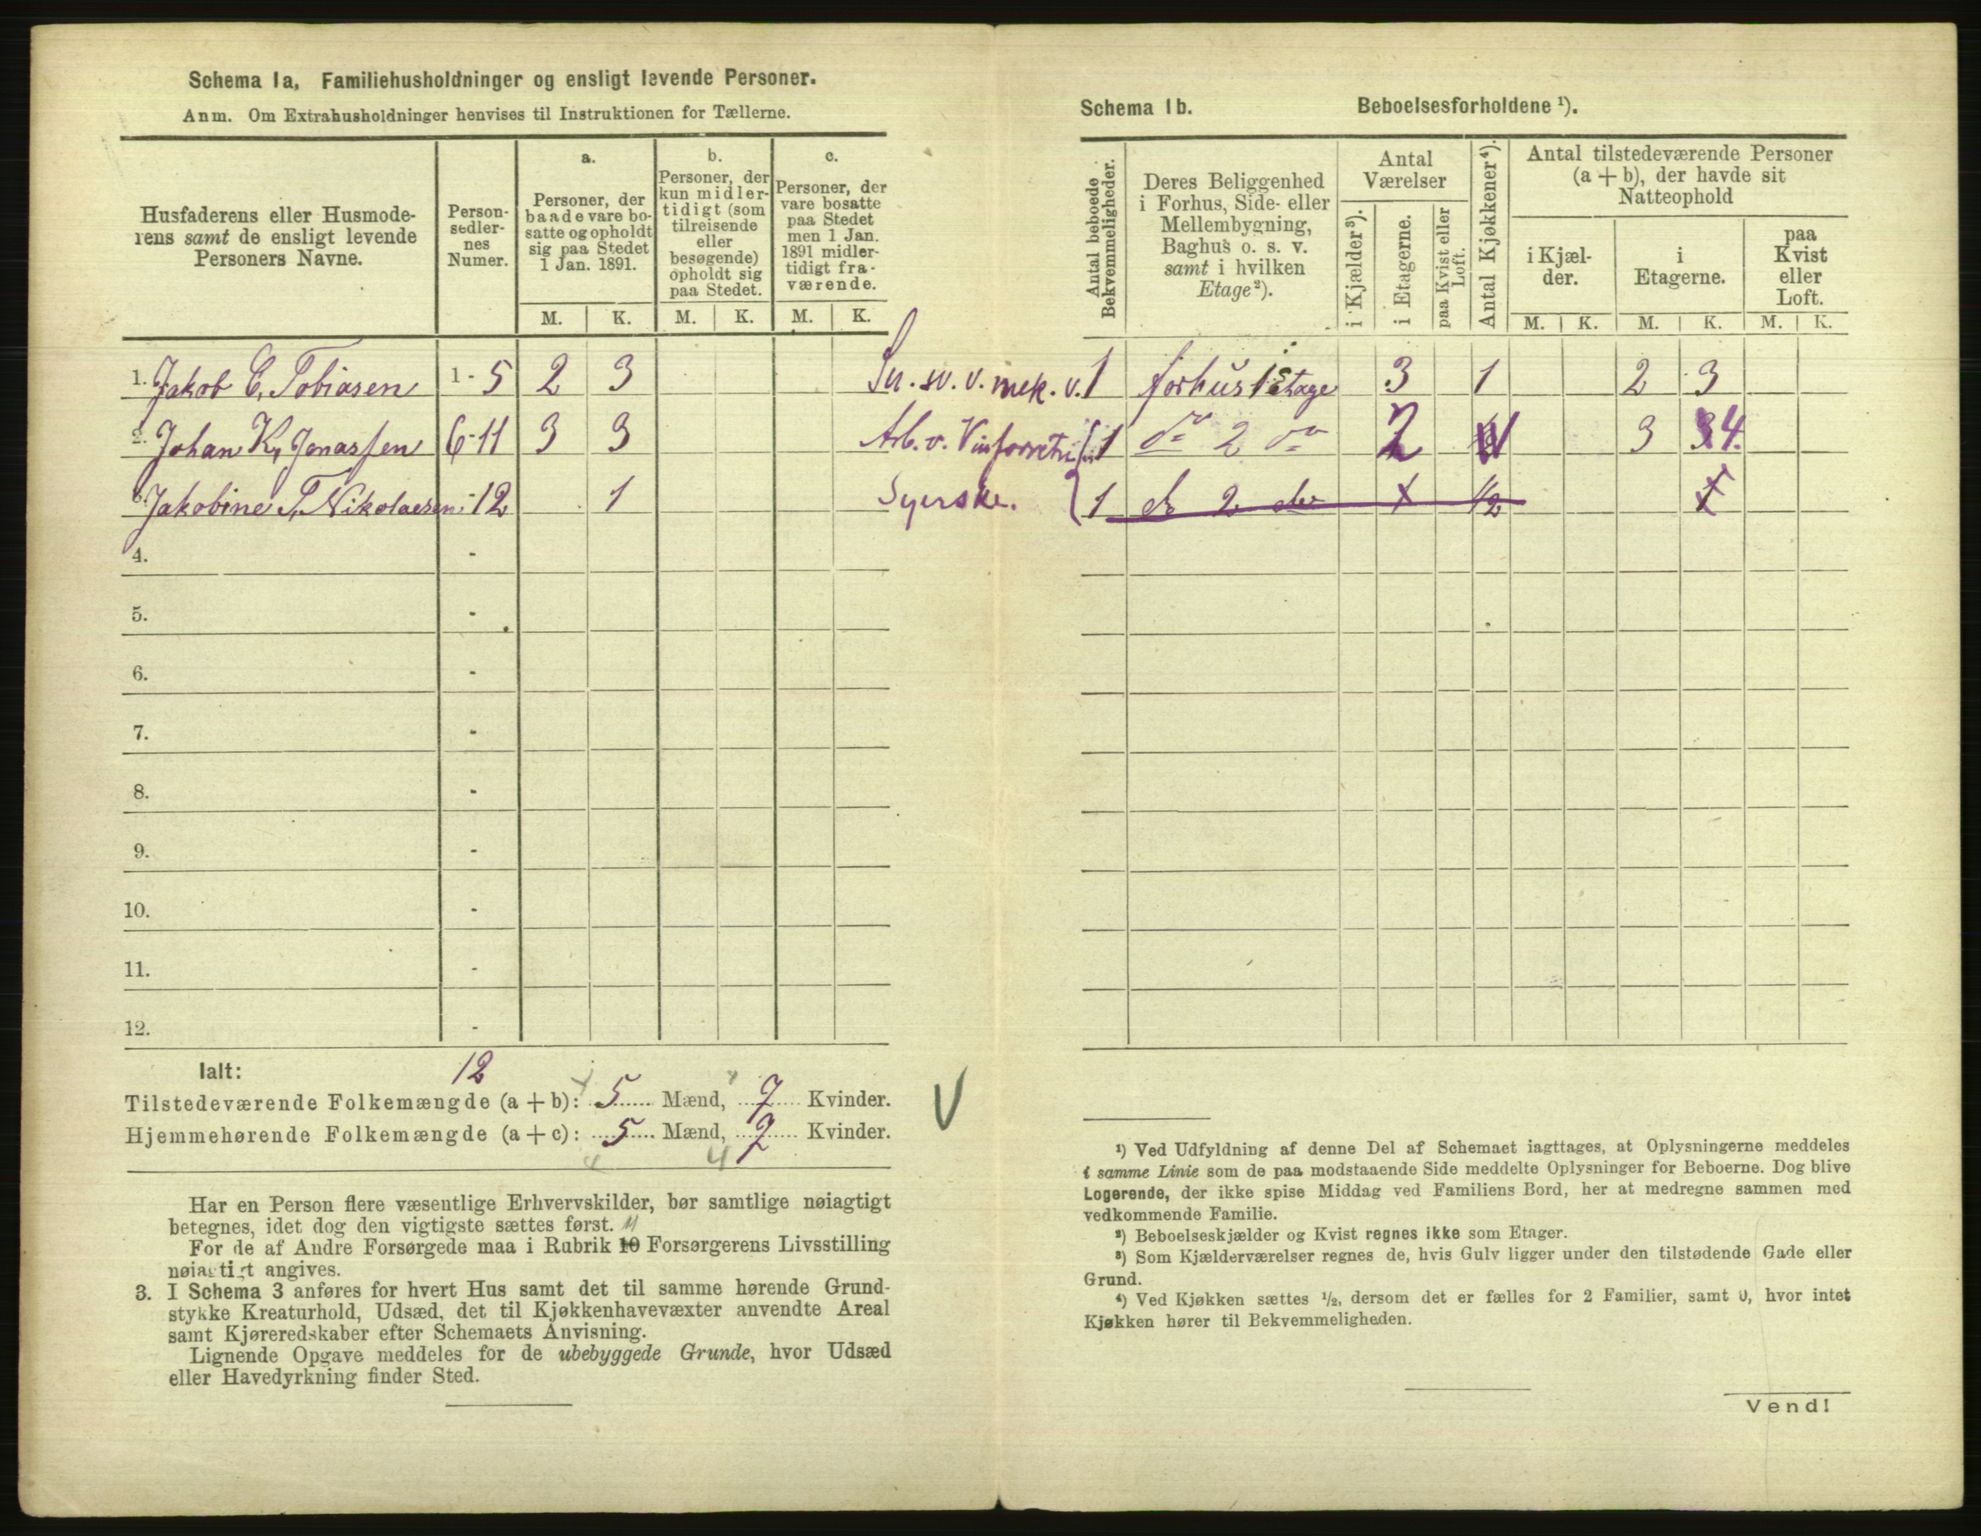 Schema 1a, Familiehusholdninger og ensligt levende Personer.
Anm. Om Extrahusholdninger henvises til Instruktionen for Tællerne.
Husfaderens eller Husmode-
rens samt de ensligt levende
Personers Navne.
Person-
sedler-
nes
Numer.
a.
Personer, der
baade vare bo-
satte og opholdt
sig paa Stedet
1 Jan. 1891.
b.
Personer, der
kun midler-
tidigt (som
tilreisende
eller
besøgende)
opholdt sig
paa Stedet.
c.
Personer, der
vare bosatte
paa Stedet
men 1 Jan.
1891 midler-
tidigt fra-
værende.
M. K. M. K. M. K.
1. Jakob C, Tobiasen 1 - 5 2 3
2. Johan K, Jonassen 6-11 3 3
3. Jakobine T, Nikolaesen - 12 1
4. -
5. -
6. -
7. -
8. -
9. -
10. -
11. -
12. -
Ialt: 12
Tilstedeværende Folkemængde (a + b): 5 Mænd, 7 Kvinder.
Hjemmehørende Folkemængde (a + c): 5 Mænd, 7 Kvinder.
4 4
V
Har en Person flere væsentlige Erhvervskilder, bør samtlige nøiagtigt
betegnes, idet dog den vigtigste sættes først.
11
For de af Andre Forsørgede maa i Rubrik 10 Forsørgerens Livsstilling
nøiagtigt angives.
3. I Schema 3 anføres for hvert Hus samt det til samme hørende Grund-
stykke Kreaturhold, Udsæd, det til Kjøkkenhavevæxter anvendte Areal
samt Kjøreredskaber efter Schemaets Anvisning.
Lignende Opgave meddeles for de ubebyggede Grunde, hvor Udsæd
eller Havedyrkning finder Sted.
Schema 1b. Beboelsesforholdene ¹).
Antal beboede
Bekvemmeligheder.
Deres Beliggenhed
i Forhus, Side- eller
Mellembygning,
Baghus o. s. v.
samt i hvilken
Etage²).
Antal
Værelser
i Kjælder³).
i Etagerne.
paa Kvist eller
Loft.
Antal Kjøkkener⁴).
Antal tilstedeværende Personer
(a + b), der havde sit
Natteophold
i Kjæl-
der.
i
Etagerne.
paa
Kvist
eller
Loft.
M. K. M. K. M. K.
Sn. sv. v. mek. v. 1 forhus 1 Etage 3 1 2 3
Arb. v. Vinforretn. 1 do 2 do 2 1 3 4.
Syerske. 1 do 2 do 1 1/2 1
¹) Ved Udfyldning af denne Del af Schemaet iagttages, at Oplysningerne meddeles
i samme Linie som de paa modstaaende Side meddelte Oplysninger for Beboerne. Dog blive
Logerende, der ikke spise Middag ved Familiens Bord, her at medregne sammen med
vedkommende Familie.
²) Beboelseskjælder og Kvist regnes ikke som Etager.
³) Som Kjælderværelser regnes de, hvis Gulv ligger under den tilstødende Gade eller
Grund.
⁴) Ved Kjøkken sættes ¹/₂, dersom det er fælles for 2 Familier, samt 0, hvor intet
Kjøkken hører til Bekvemmeligheden.
Vend!